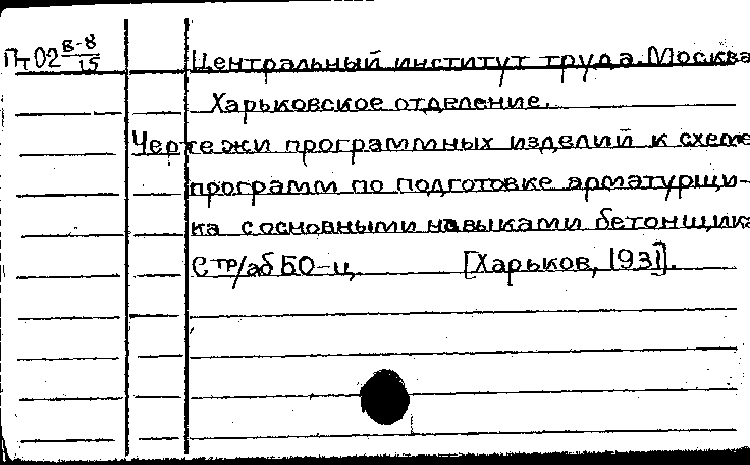 Пт02 В-8/15
Центральный институт труда. Москва
Харьковское отделение.
Чертежи программных изделий к схеме
программ по подготовке арматурщи-
ка с основными навыками бетонщика
Стр/аб БО-ц. [Харьков, 1931].